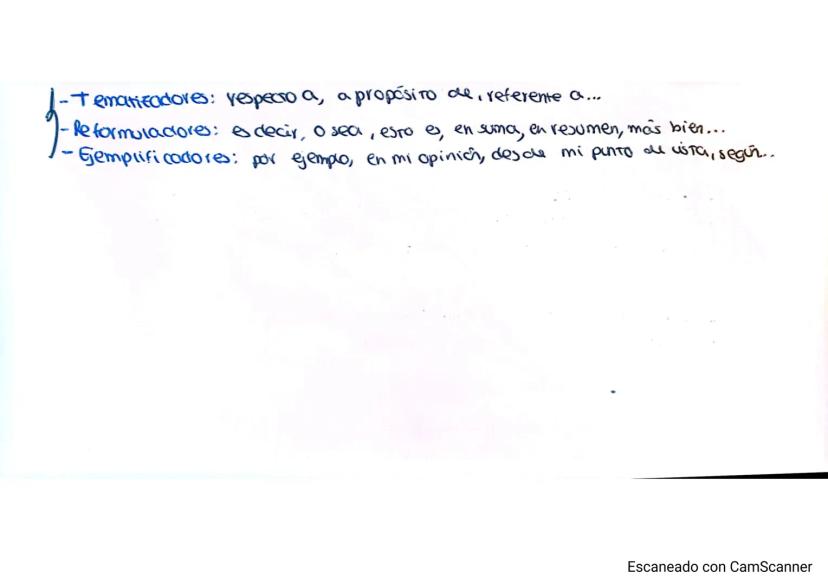 - Tematizadores: respecto a, a propósito de, referente a...
- Reformuladores: es decir, o sea, esto es, en suma, en resumen, más bien...
- Ejemplificadores: por ejemplo, en mi opinión, desde mi punto de vista, según...
Escaneado con CamScanner